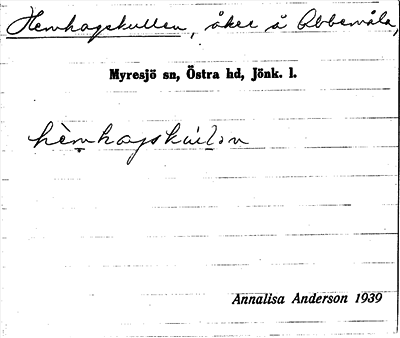 Hemhagskullen, åker å Abbemåla,
Myresjö sn, Östra hd, Jönk. l.
Annalisa Anderson 1939